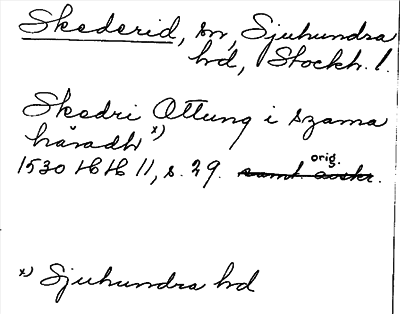 Skederid, sn, Sjuhundra
hd, Stockh. l.
Skedri Ottung i szama
häradh x)
1530 HH 11, s. 29. orig. samt. avskr.
x) Sjuhundra hd